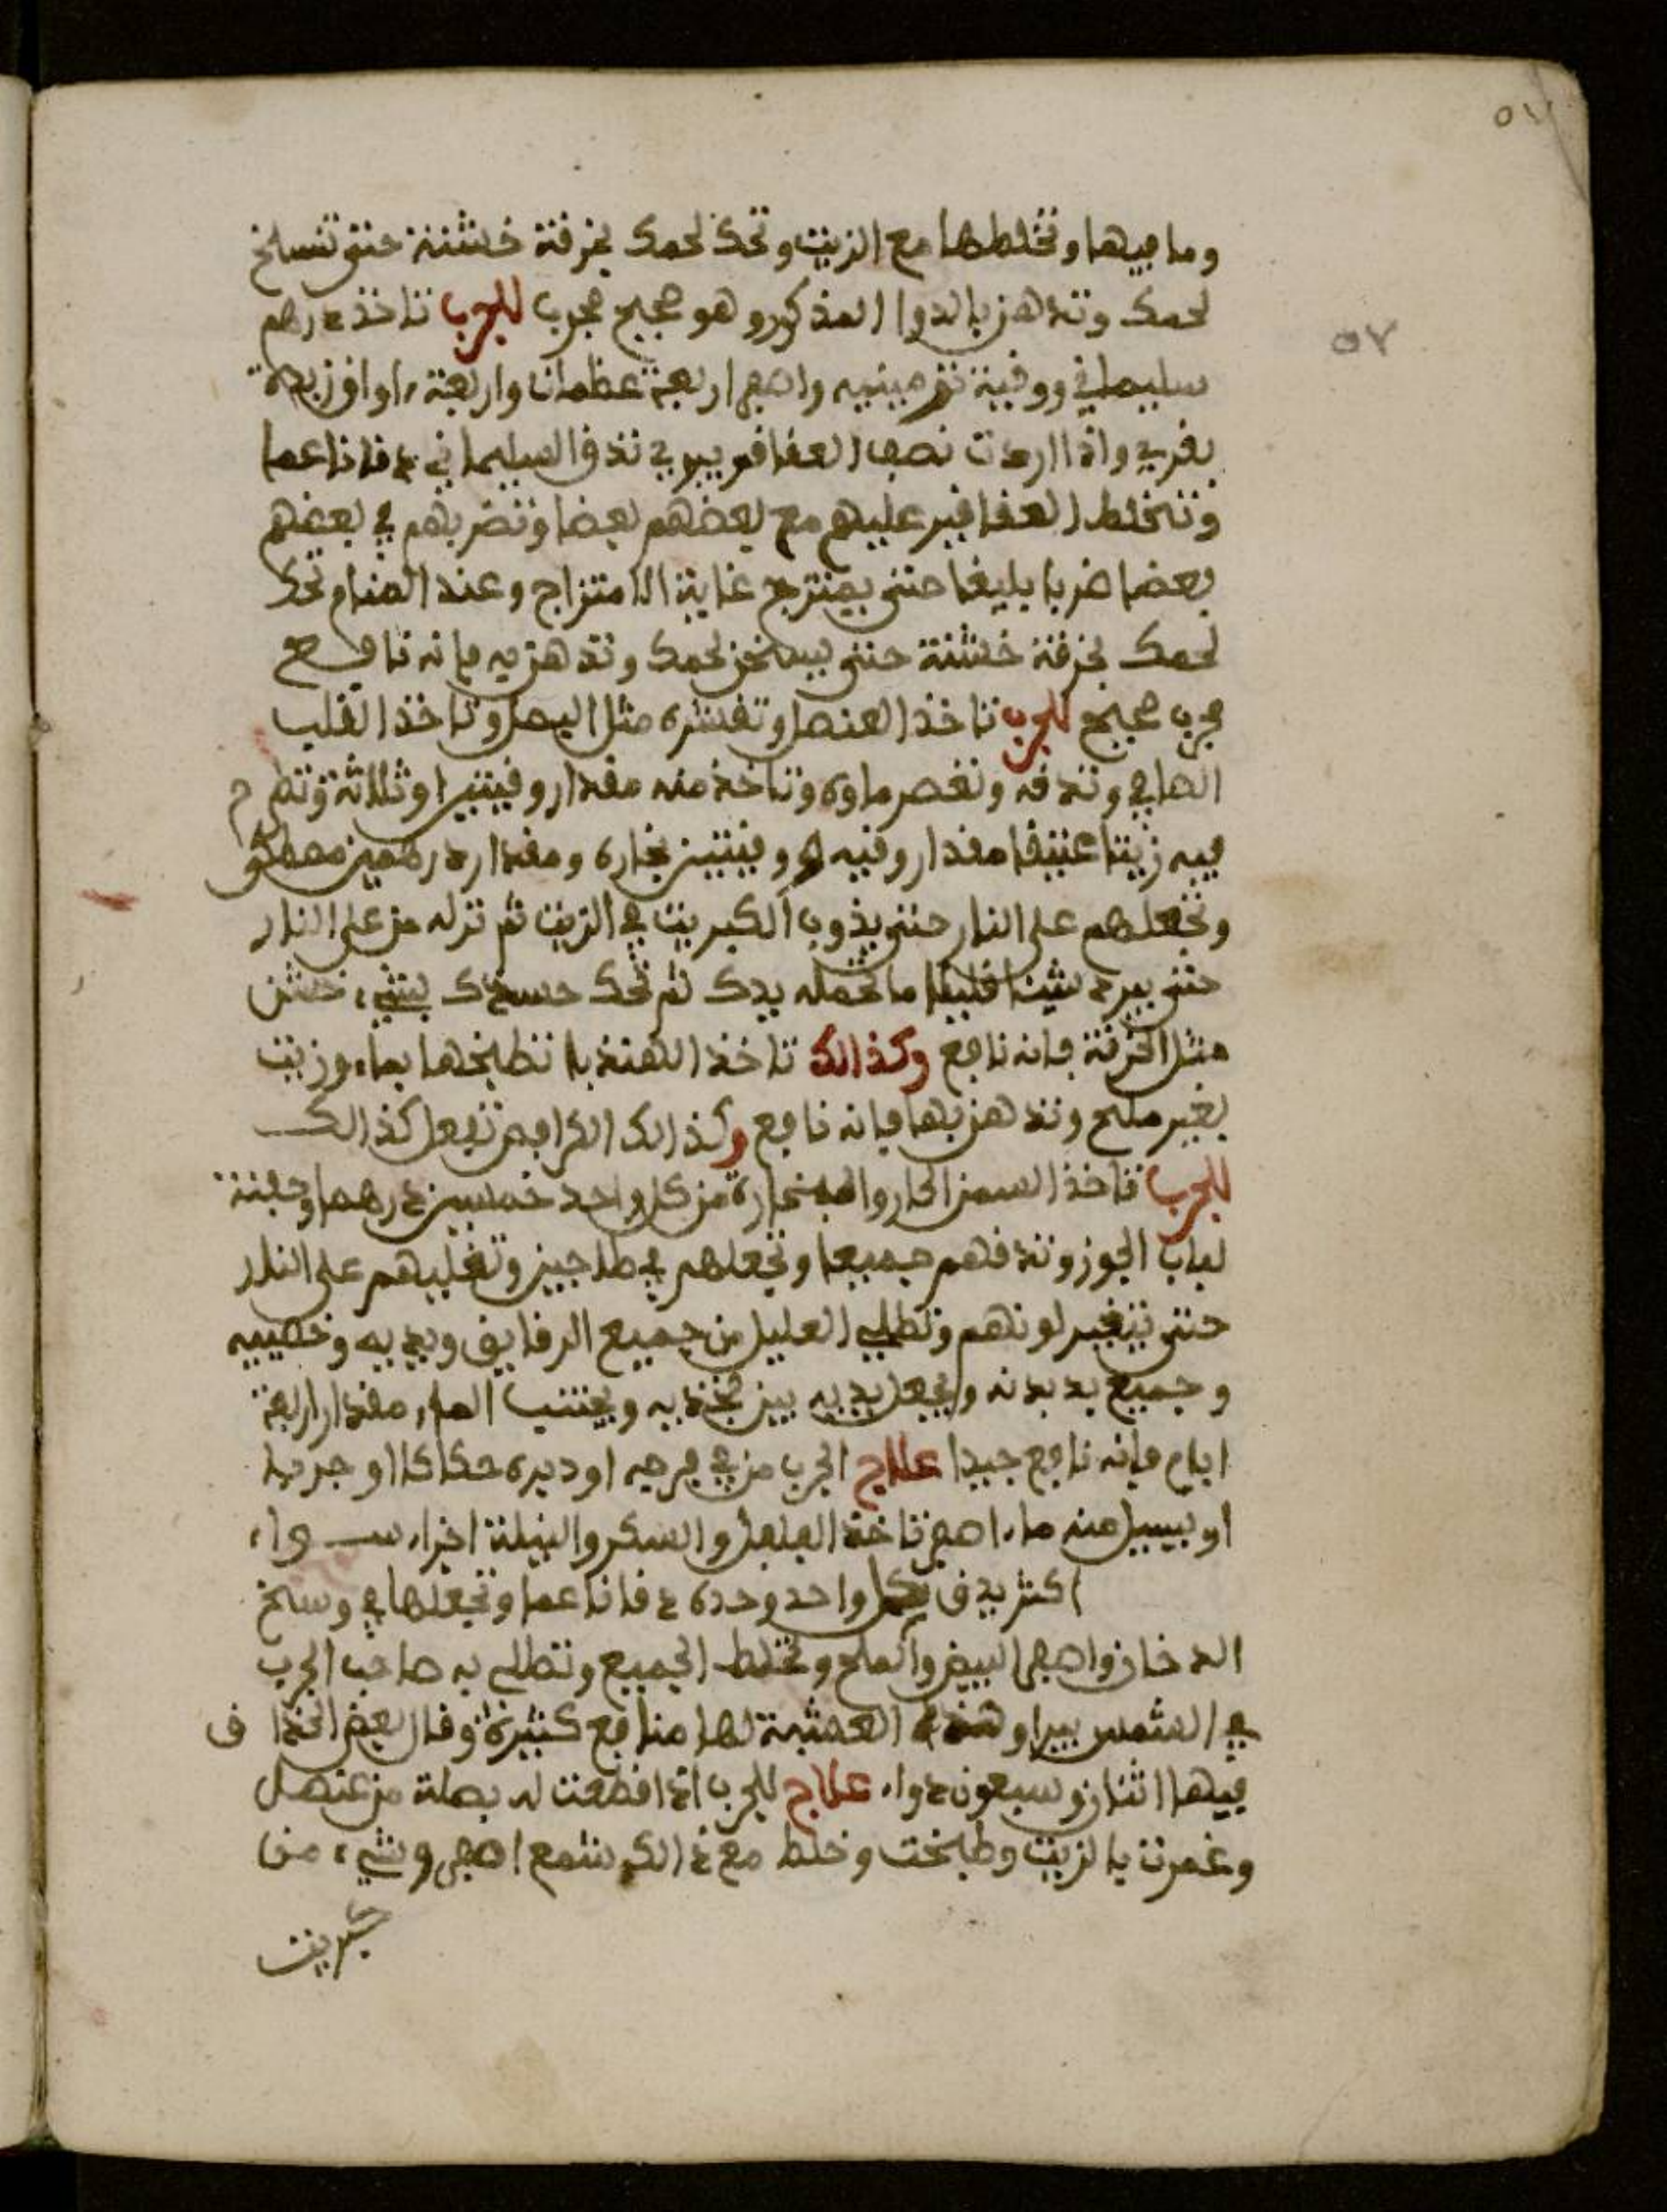 ٥٧
٥٧
وما فيها وتخلطها مع الزيت وتحك لحمك بخرقة خشنة حتى تسلخ
لحمك وتدهن بالدوا المذكور وهو صحيح مجرب للجرب تاخذ درهم
سليماني ووقية واصفر اربعة عظمات واربعة اواق زبدة
بقري واذا اردت نصف العقاقير تدق السليماني دقا ناعما
وتخلط العقاقير عليهم مع بعضهم بعضا وتضربهم في بعضهم
بعضا ضربا بليغا حتى يمتزج غاية الامتزاج وعند المنام تحك
لحمك بخرقة خشنة حتى يسخن لحمك وتدهن به فانه نافع
مجرب صحيح للجرب تاخذ العنصل وتقشره مثل البصل وتاخذ القلب
الصافي وتدقه وتعصر ماوه وتاخذ منه مقدار وقيتين او ثلاثة وتطرح
فيه زيتا عتيقا مقدار وقيه او وقيتين بخاره ومقدار درهمين مصطكى
وتجعلهم على النار حتى يذوب الكبريت في الزيت ثم تزله من على النار
حتى يبرد شيئا قليلا ما تحمله يدك ثم تحك جسدك بشيء خشن
مثل الخرقة فانه نافع وكذالك تاخذ الهندبا تطبخها بماء وزيت
بغير ملح وتدهن بها فانه نافع وكذالك الكرافس تفعل كذالك
للجرب تاخذ السمن الحار والبخارة من كل واحد خمسين درهما وحفنة
لباب الجوز وتدقهم جميعا وتجعلهم في طاجين وتغليهم على النار
حتى يتغير لونهم وتطلي العليل من جميع الرفايق ويديه وخصييه
وجميع بدنه ويجعل يديه بين فخذيه ويجتنب الماء مقدار اربعة
ايام فانه نافع جيدا علاج الجرب من في فرجه او دبره حكاكا او جربا
او يسيل منه ماء اصفر تاخذ الفلفل والسكر والنيلة اجزاء سواء
اكثر يدق كل واحد وحده دقا ناعما وتجعلها في وسخ
الدخان واصفر البيض والملح وتخلط الجميع وتطلي به صاحب الجرب
في الشمس يبرا وهذه العشبة لها منافع كثيرة وقال بعض الحذاق
فيها اثنان وسبعون دواء علاج للجرب اذا قطعت له بصلة من عنصل
وغمرت بالزيت وطبخت وخلط مع ذالك شمع اصفر وشيء من
كبريت